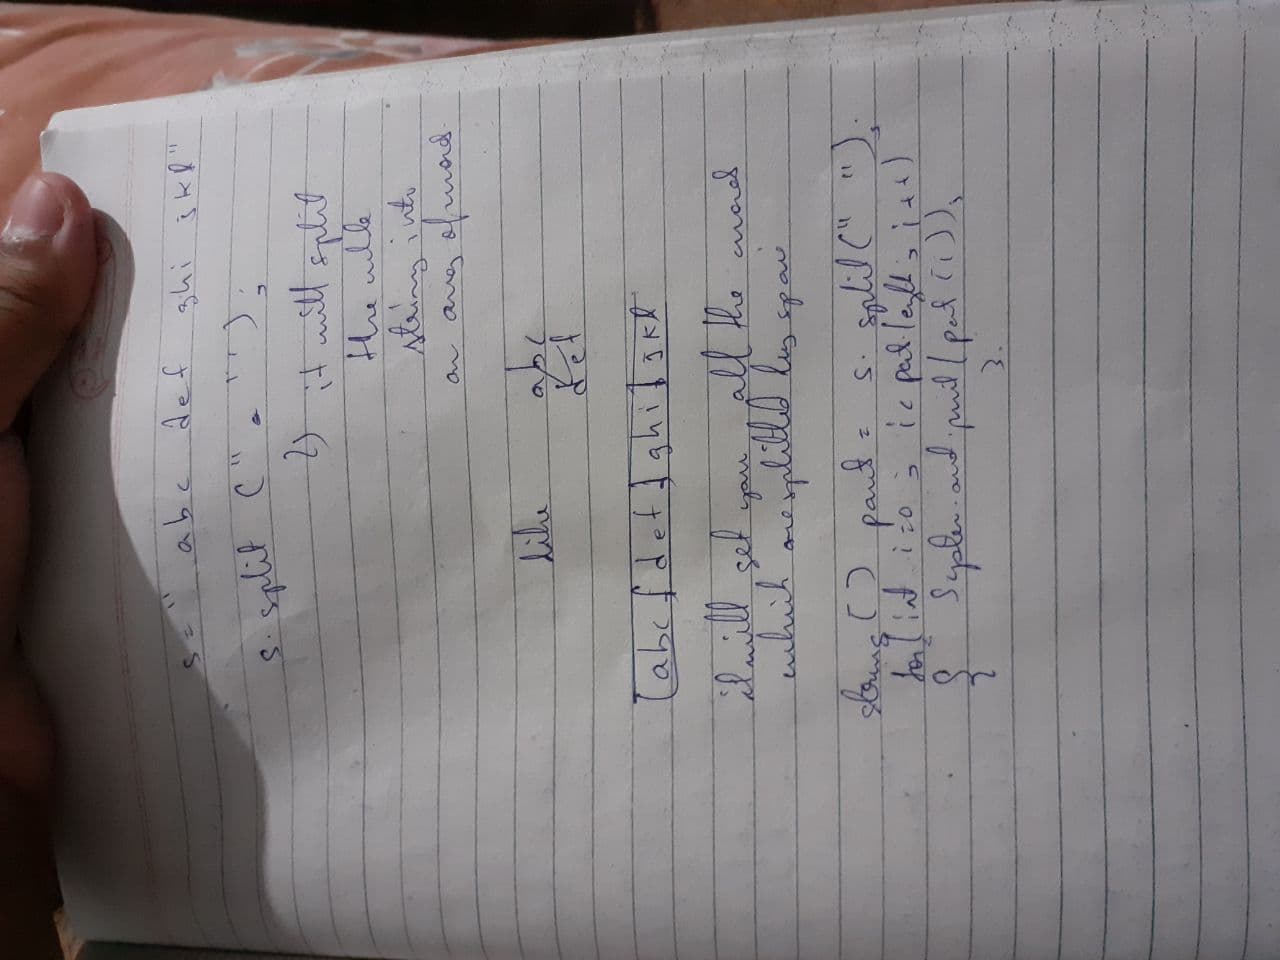 s = " abc def ghi jkl"
s. split (" ");
↳ it will split
the whole
string into
an array of word.
like abc
def
[abc | def | ghi | jkl
it will get you all the word
which are splitted by spai
string [] part = s. split (" ");
for (int i=0; i< part.length; i++)
{ System.out.print (part (i));
}